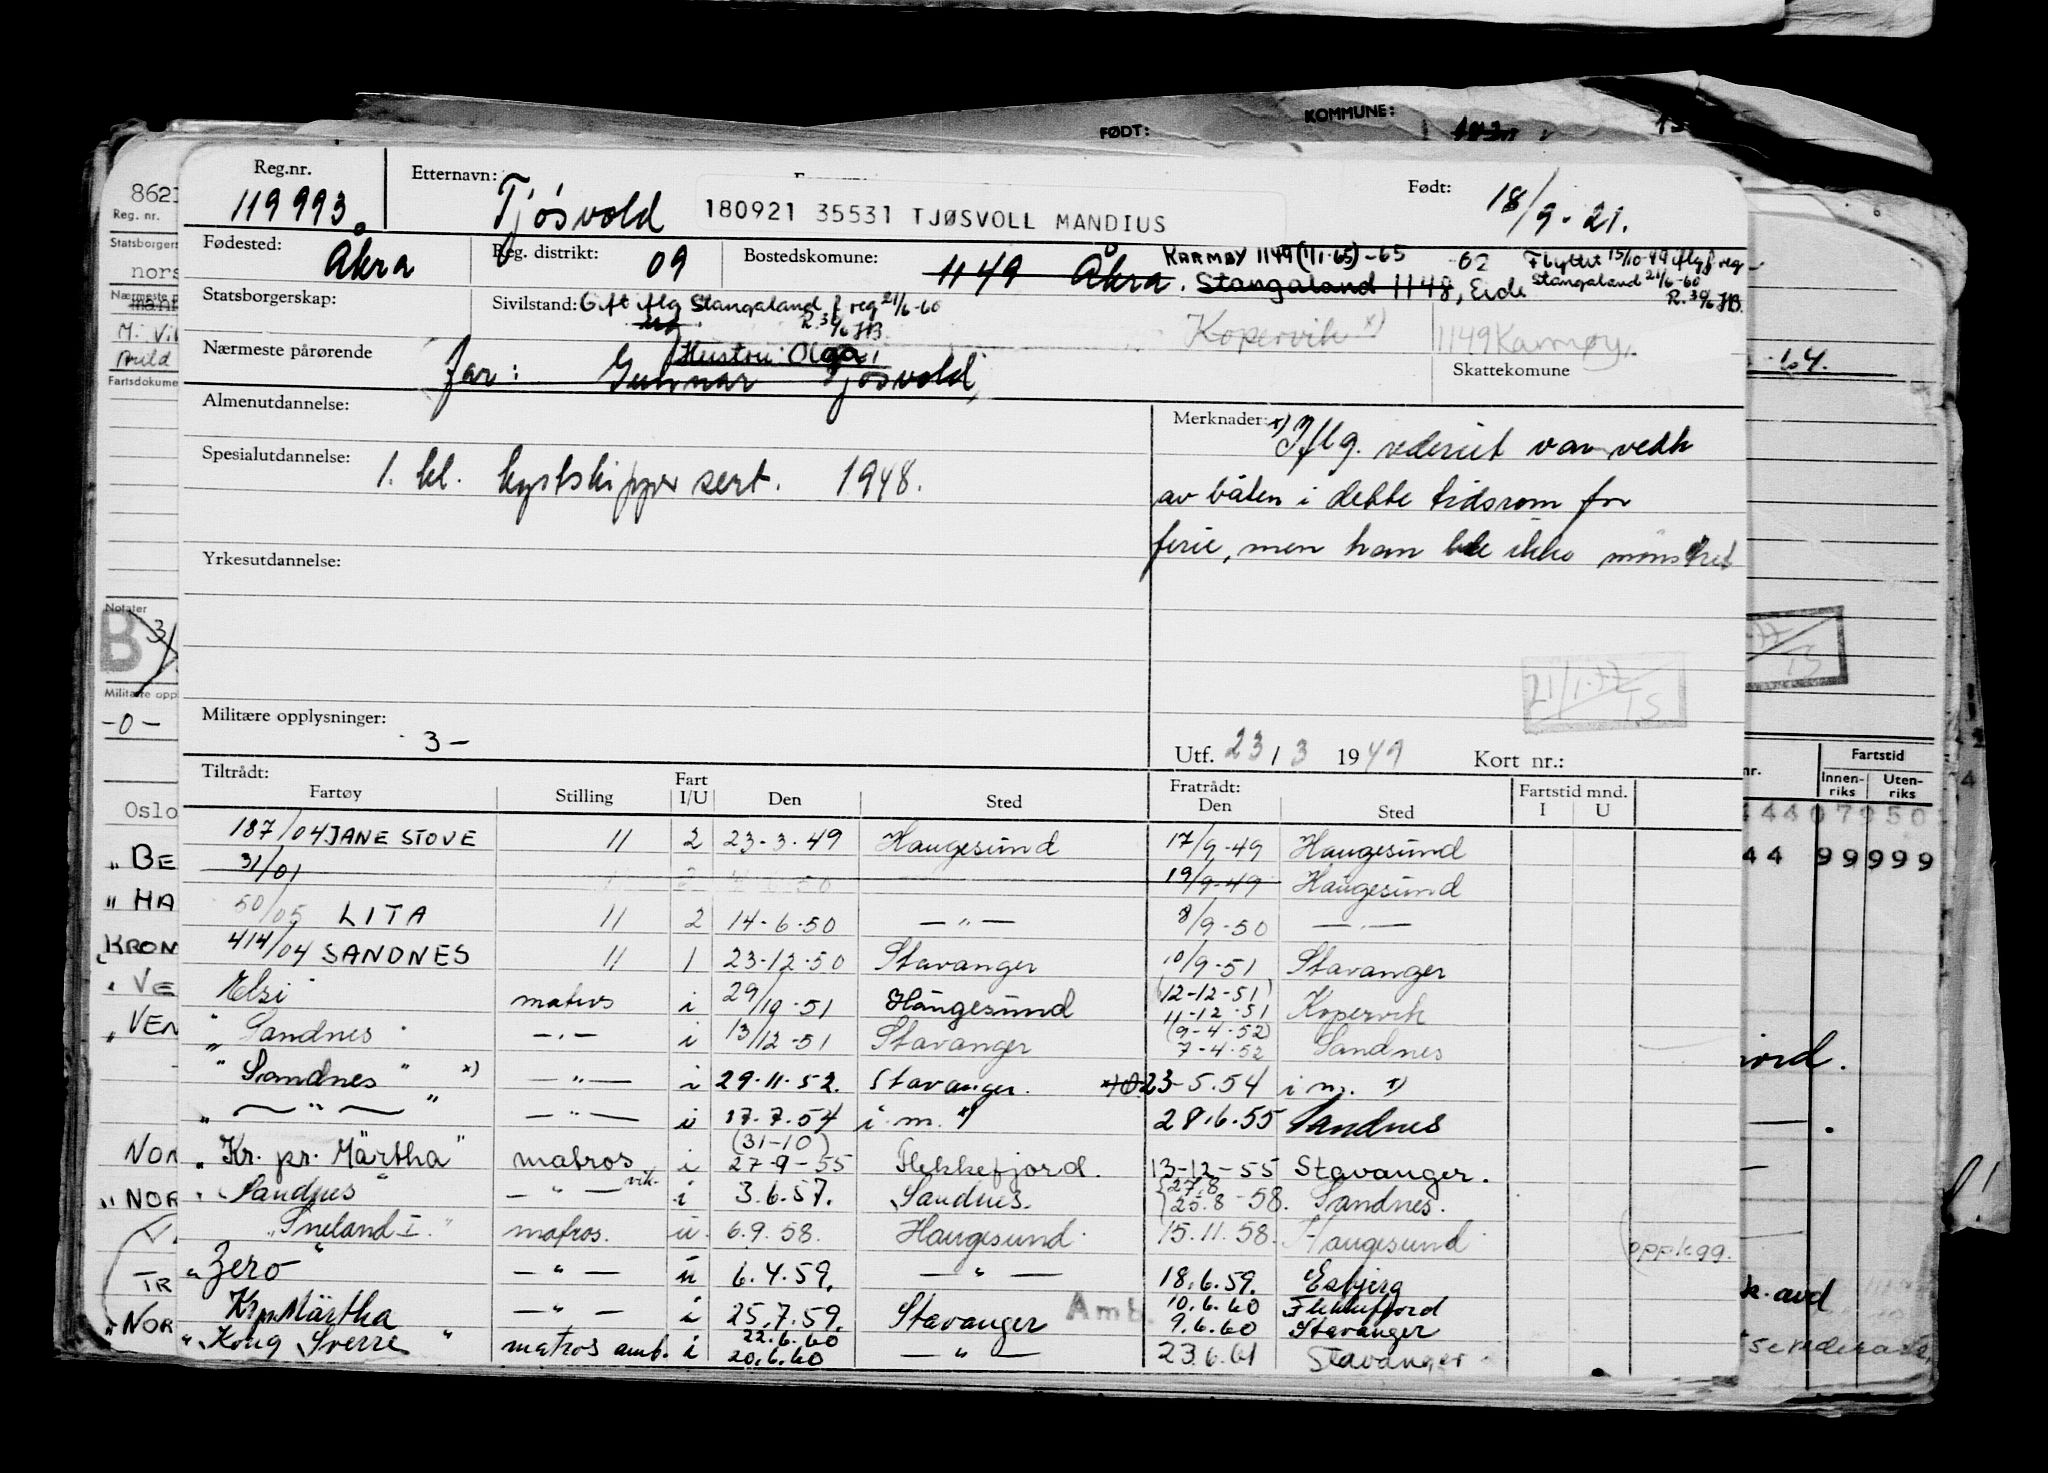 FØDT:
KOMMUNE:
Reg.nr.
119993
Etternavn: Tjøsvold
180921 35531 TJØSVOLL MANDIUS
Født: 18/9-21.
Fødested: Akra
Reg. distrikt: 09
Bostedskomune: 1149 Åkra. Stangaland 1148, Eide
KARMØY 1149 (1/1-65) -65
62 Flyttet 15/10-49 iflg f reg
Stangaland 21/6-60
R. 30/6 HB.
Statsborgerskap:
Sivilstand: Gift iflg Stangaland f reg 21/6-60
ug R. 30/6 HB.
Kopervik x)
1149 Karmøy.
Skattekomune
Nærmeste pårørende
Hustru: Olga
Far: Gunnar Tjøsvold,
Almenutdannelse:
Merknader: x) Iflg. rederiet var vedk
av båten i dette tidsrom for
ferie, men han ble ikke mønstret
Spesialutdannelse: 1. kl. kystskipper sert. 1948.
Yrkesutdannelse:
21/1-77
TS
Militære opplysninger:
3-
Utf. 23/3 1949 Kort nr.:
Tiltrådt:
Fartøy Stilling Fart I/U Den Sted
Fratrådt:
Den Sted
Fartstid mnd.
I U
187/04 JANE STOVE 11 2 23-3-49 Haugesund 17/9-49 Haugesund
31/01 19/9-49 Haugesund
50/05 LITA 11 2 14-6-50 — " — 8/9-50 — " —
414/04 SANDNES 11 1 23-12-50 Stavanger 10/9-51 Stavanger
Elsi matros i 29/10-51 Haugesund (12-12-51) 11-12-51 Kopervik
" Sandnes — " — i 13/12-51 Stavanger (9-4-52) 7-4-52 Sandnes
" Sandnes " x) — " — i 29-11-52. Stavanger. 23-5-54 i m. x)
" — " — " — " — i 17.7.54 i m. x) 28.6.55 Sandnes
" Kr. pr. Märtha " matros i (31-10) 27-9-55 Flekkefjord. 13-12-55 Stavanger.
" Sandnes " — " — vik. i 3.6.57. Sandnes. 27.8 25.8-58. Sandnes.
" Sneland I " matros. u. 6.9.58. Haugesund 15.11.58. Haugesund (opplegg.
" Zero " — " — u 6.4.59. — " — 18.6.59. Esbjerg
Kr.pr.Märtha — " — i 25.7.59. Stavanger Amb. 10.6.60 Flekkefjord
9.6.60 Stavanger
" Kong Sverre " matros amb. i 22.6.60 20.6.60 — " — 23.6.61 Stavanger
8621
Reg. nr.
Statsborgers
nors
Nærmeste p
Fartsdokume
Notater
B
Militære opp
-0-
Oslo
" BE
" HA
KRON
" VE
" VEN
NOR
" NOR
TR
" NOR
Fartstid
nr.
Innen-
riks
Uten-
riks
44407950
44 99999